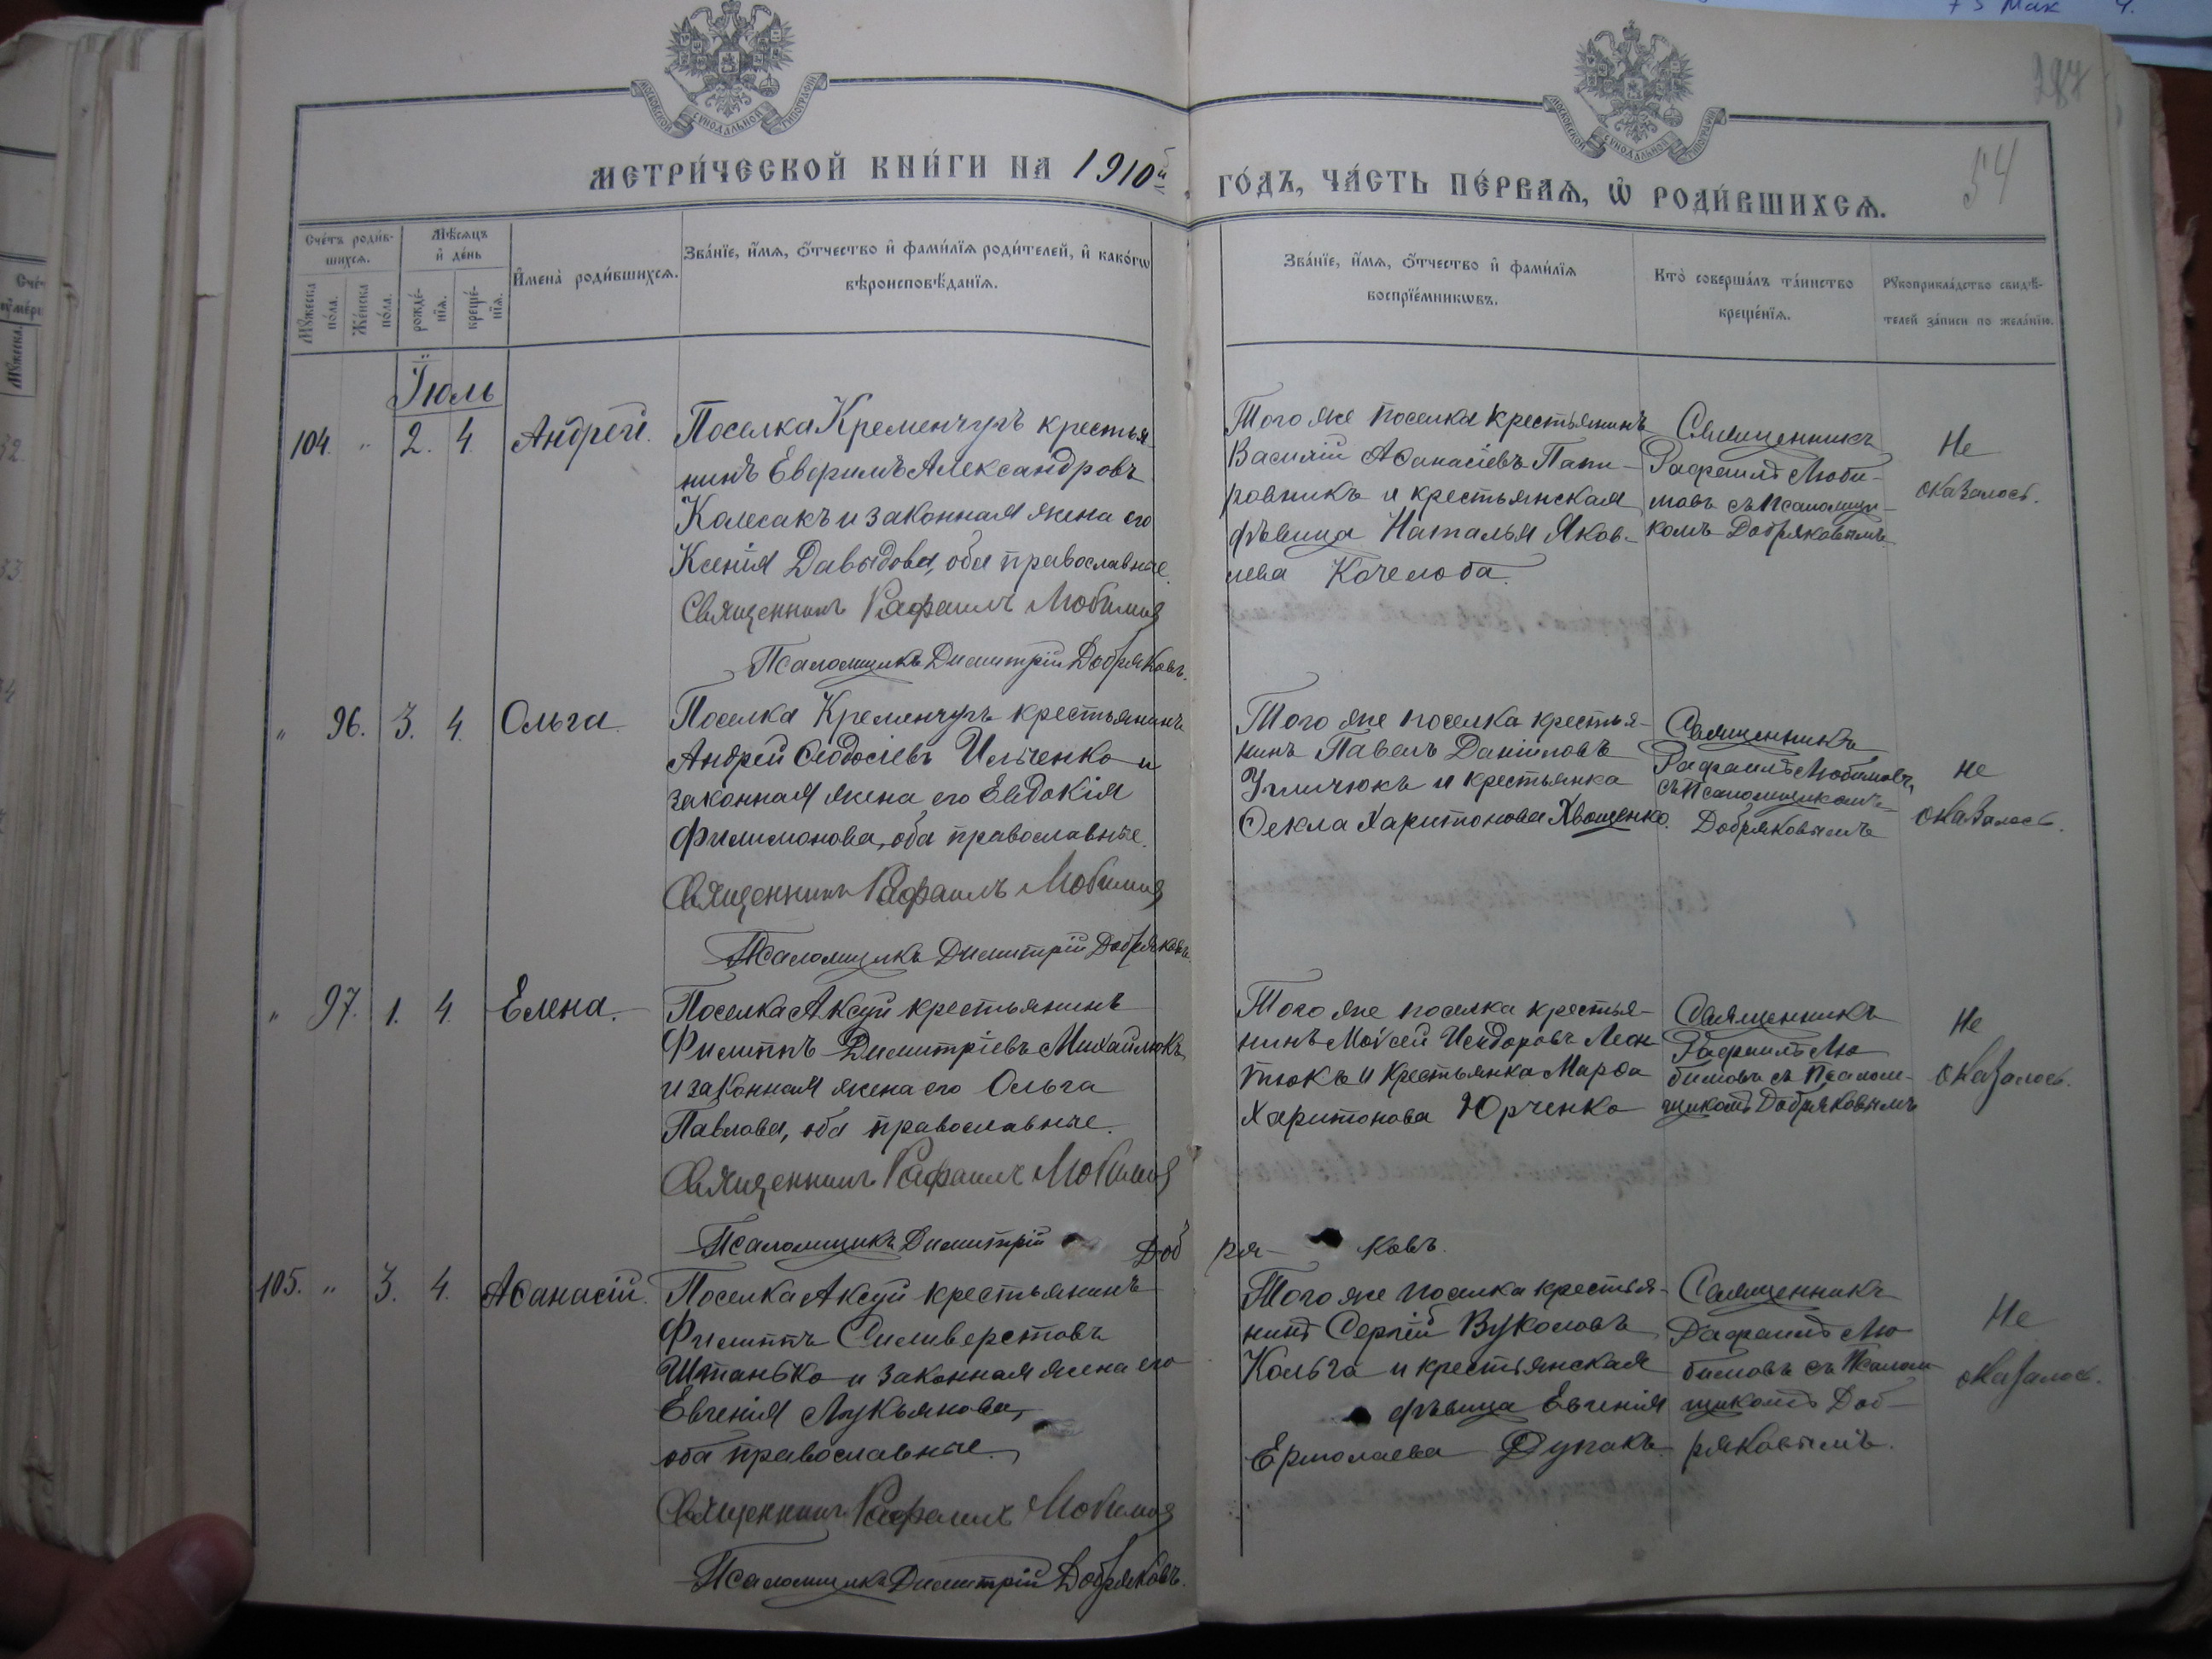 МОСКОВСКОЙ СУНОДАЛЬНОЙ ТИПОГРАФІИ
МОСКОВСКОЙ СУНОДАЛЬНОЙ ТИПОГРАФІИ
287
54
МЕТРИ́ЧЕСКОЙ КНИ́ГИ НА 1910й ГО́ДЪ, ЧА́СТЬ ПЕ́РВАѦ, Ѡ҆ РОДИ́ВШИХСѦ.
Сче́тъ роди́в-
шихсѧ.
Мꙋ́жеска по́ла.
Же́нска по́ла.
Мѣ́сѧцъ
и҆ де́нь
рожде́-
нїѧ.
креще́-
нїѧ.
И҆мена̀ роди́вшихсѧ.
Зва́нїе, и҆́мѧ, ѻ҆́тчество и҆ фами́лїѧ роди́телей, и҆ како́гѡ
вѣроисповѣ́данїѧ.
Зва́нїе, и҆́мѧ, ѻ҆́тчество и҆ фами́лїѧ
воспрїе́мникѡвъ.
Кто̀ соверша́лъ та́инство
креще́нїѧ.
Рꙋкоприкла́дство свидѣ́-
телей за́писи по жела́нїю.
Іюль
104. " 2. 4. Андрей.
Поселка Кременчугъ крестья
нинъ Евфимъ Александровъ
Колесакъ и законная жена его
Ксенія Давыдова, оба православные.
Священникъ Рафаилъ Любимов
Псаломщикъ Димитрій Добряковъ.
Того же поселка крестьянинъ
Василій Аѳанасіевъ Папи-
ровникъ и крестьянская
дѣвица Наталья Яков-
лева Кочелоба.
Священникъ
Рафаилъ Люби-
мовъ съ Псаломщи-
комъ Добряковымъ
Не
оказалось.
" 96. 3. 4. Ольга.
Поселка Кременчугъ крестьянинъ
Андрей Ѳеодосіевъ Ильченко и
законная жена его Евдокія
Филимонова, оба православные.
Священникъ Рафаилъ Любимов
Псаломщикъ Димитрій Добряковъ
Того же поселка крестья-
нинъ Павелъ Даніиловъ
и крестьянка
Ѳекла Харитонова Хвощенко.
Священникъ
Рафаилъ Любимовъ
съ Псаломщикомъ
Добряковымъ
Не
оказалось.
" 97. 1. 4. Елена.
Поселка Аксуй крестьянинъ
Филиппъ Димитріевъ Михайлюкъ
и законная жена его Ольга
Павлова, оба православные.
Священникъ Рафаилъ Любимов
Псаломщикъ Димитрій Доб ря- ковъ.
Того же поселка крестья-
нинъ Моѵсей Исидоровъ Леон
тюкъ и крестьянка Марѳа
Харитонова Юрченко
Священникъ
Рафаилъ Лю
бимовъ съ Псалом-
щикомъ Добряковымъ
Не
оказалось.
105. " 3. 4. Аѳанасій.
Поселка Аксуй крестьянинъ
Филиппъ Силиверстовъ
Штанько и законная жена его
Евгенія Лукьянова,
оба православные.
Священникъ Рафаилъ Любимов
Псаломщикъ Димитрій Добряковъ.
Того же поселка крестья-
нинъ Сергій Вуколовъ
Кольга и крестьянская
дѣвица Евгенія
Ермолаева Дупакъ.
Священникъ
Рафаилъ Лю
бимовъ съ Псалом
щикомъ Доб-
ряковымъ.
Не
оказалось.